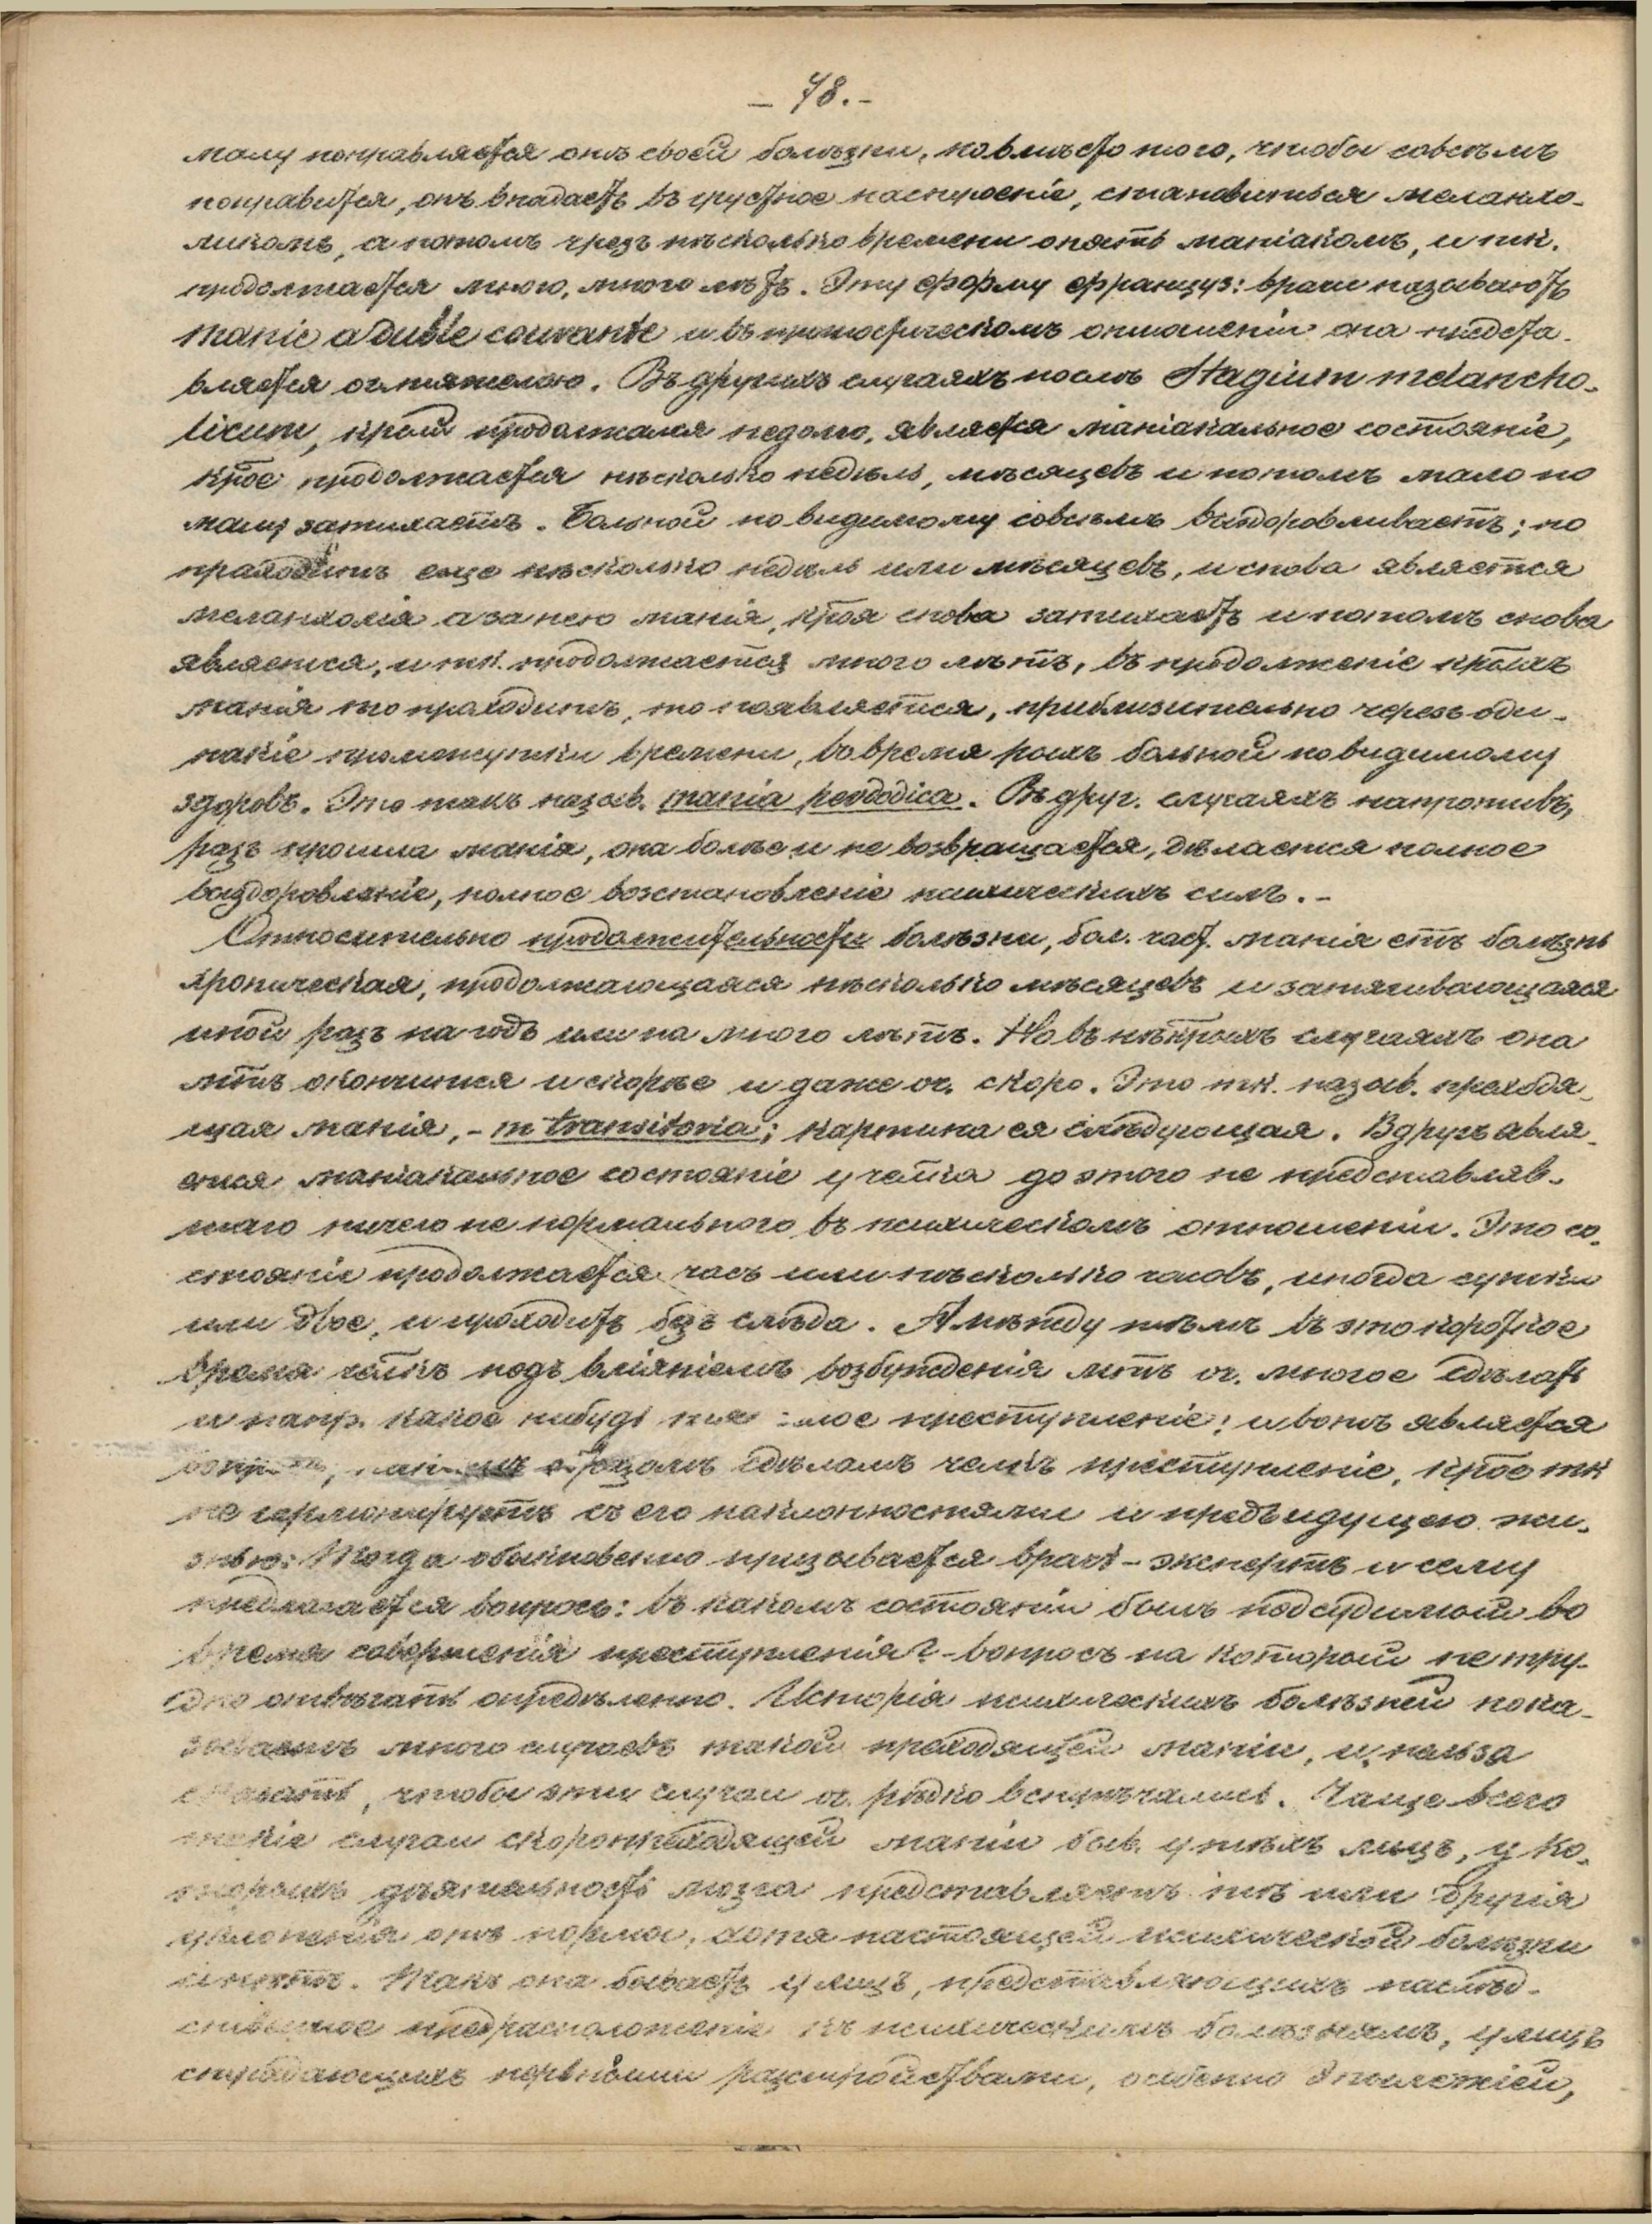 – 78. –
малу поправляется отъ своей болѣзни, но вмѣсто того, чтобы совсѣмъ
поправиться, онъ впадаетъ въ грустное настроеніе, становиться меланхо-
ликомъ, а потомъ чрезъ нѣсколько времени опять маніакомъ, и тк.
продолжается много, много лѣтъ. Эту форму француз: врачи называютъ
manie a duble courante и въ прогностическомъ отношеніи она предста-
вляется оч. тяжелою. Въ другихъ случаяхъ послѣ Stagium melancho-
licum, кром продолжался недолго, является маніакальное состояніе,
крое продолжается нѣсколько недѣль, мѣсяцевъ и потомъ мало по
малу затихаетъ. Больной по видимому совсѣмъ выздоровливаетъ; но
проходитъ еще нѣсколько недѣль или мѣсяцевъ, и снова является
меланхолія а за нею манія, кроя снова затихаетъ и потомъ снова
является, и тк. продолжается много лѣтъ, въ продолженіе крыхъ
манія то проходитъ, то появляется, приблизительно черезъ оди-
накіе промежутки времени, во время коихъ больной повидимому
здоровъ. Это такъ назыв. mania peododica. Въ друг. случаяхъ напротивъ,
разъ прошла манія, она болѣе и не возвращается, дѣлается полное
выздоровленіе, полное возстановленіе психическихъ силъ. –
Относительно продолжительности болѣзни, бол. част. манія есть болѣзнь
хроническая, продолжающаяся нѣсколько мѣсяцевъ и затягивающаяся
иной разъ на годъ или на много лѣтъ. Но въ нѣкрыхъ случаяхъ она
мтъ окончится и скорѣе и даже оч. скоро. Это тк. назыв. преходя-
щая манія, – m transitoria; картина ея слѣдующая. Вдругъ явля-
ется маніакальное состояніе у члка до этого не представляв-
шаго ничего не нормального въ психическомъ отношеніи. Это со-
стояніе продолжается часъ или нѣсколько часовъ, иногда сутки
или двое, и проходитъ безъ слѣда. А между тѣмъ въ это короткое
время члкъ подъ вліяніемъ возбужденія мтъ оч. многое сдѣлать
и напр. какое нибудь тяжелое преступленіе; и вотъ является
вопросъ, какимъ образомъ сдѣлалъ члкъ преступленіе, крое тк
не гармонируетъ съ его наклонностями и предъидущею жи-
знью. Тогда обыкновенно призывается врачъ-экспертъ и ему
предлагается вопросъ: въ какомъ состояніи былъ подсудимый во
время совершенія преступленія? – вопросъ на который не тру-
дно отвѣчать опредѣленно. Исторія психическихъ болѣзней пока-
зываетъ много случаевъ такой преходящей маніи, и нельзя
сказать, чтобы эти случаи оч. рѣдко встрѣчались. Чаще всего
такіе случаи скоропреходящей маніи быв. у тѣхъ лицъ, у ко-
торыхъ дѣятельность мозга представляетъ тѣ или другія
уклоненія отъ нормы, хотя настоящей психической болѣзни
и нѣтъ. Такъ она бываетъ у лицъ, представляющихъ наслѣд-
ственное предрасположеніе къ психическимъ болѣзнямъ, у лицъ
страдающихъ нервными разстройствами, особенно эпилепсіей,